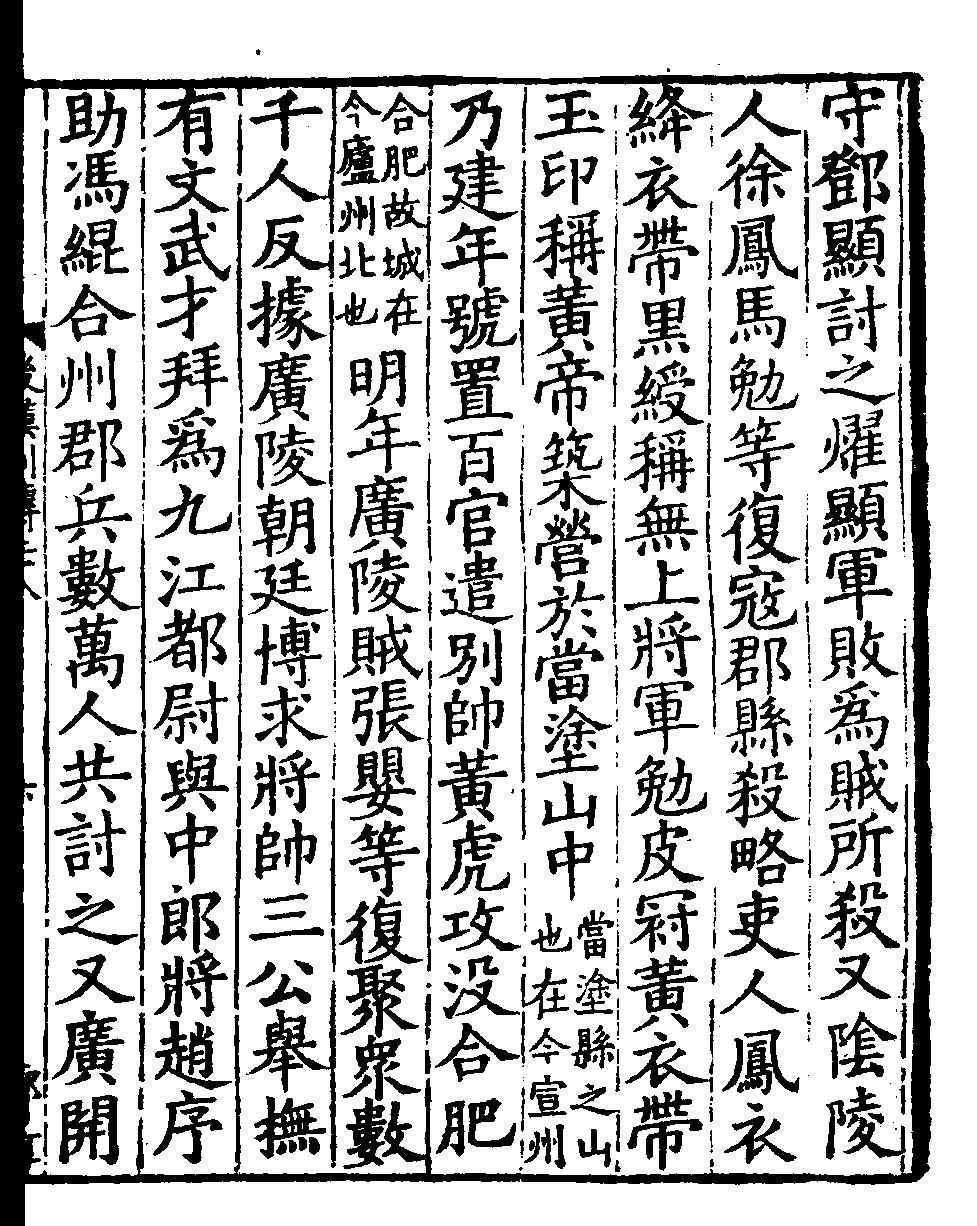 守鄧顯討之燿顯軍敗爲賊所殺又陰陵
人徐鳳馬勉等復寇郡縣殺略吏人鳳衣
絳衣帶黑綬稱無上將軍勉皮冠黃衣帶
玉印稱黃帝築營於當塗山中當塗縣之山
也在今宣州
乃建年號置百官遣別帥黃虎攻没合肥
合肥故城在
今廬州北也明年廣陵賊張嬰等復聚衆數
千人反據廣陵朝廷博求將帥三公舉撫
有文武才拜爲九江都尉與中郎將趙序
助馮緄合州郡兵數萬人共討之又廣開